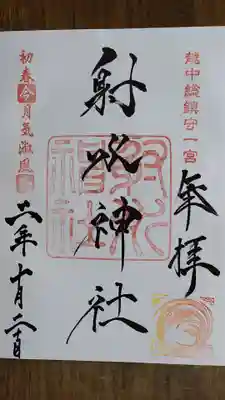 越中総鎮守一宮
奉拝
射水神社
射水神社
初春令月気淑風
六年十月二十日